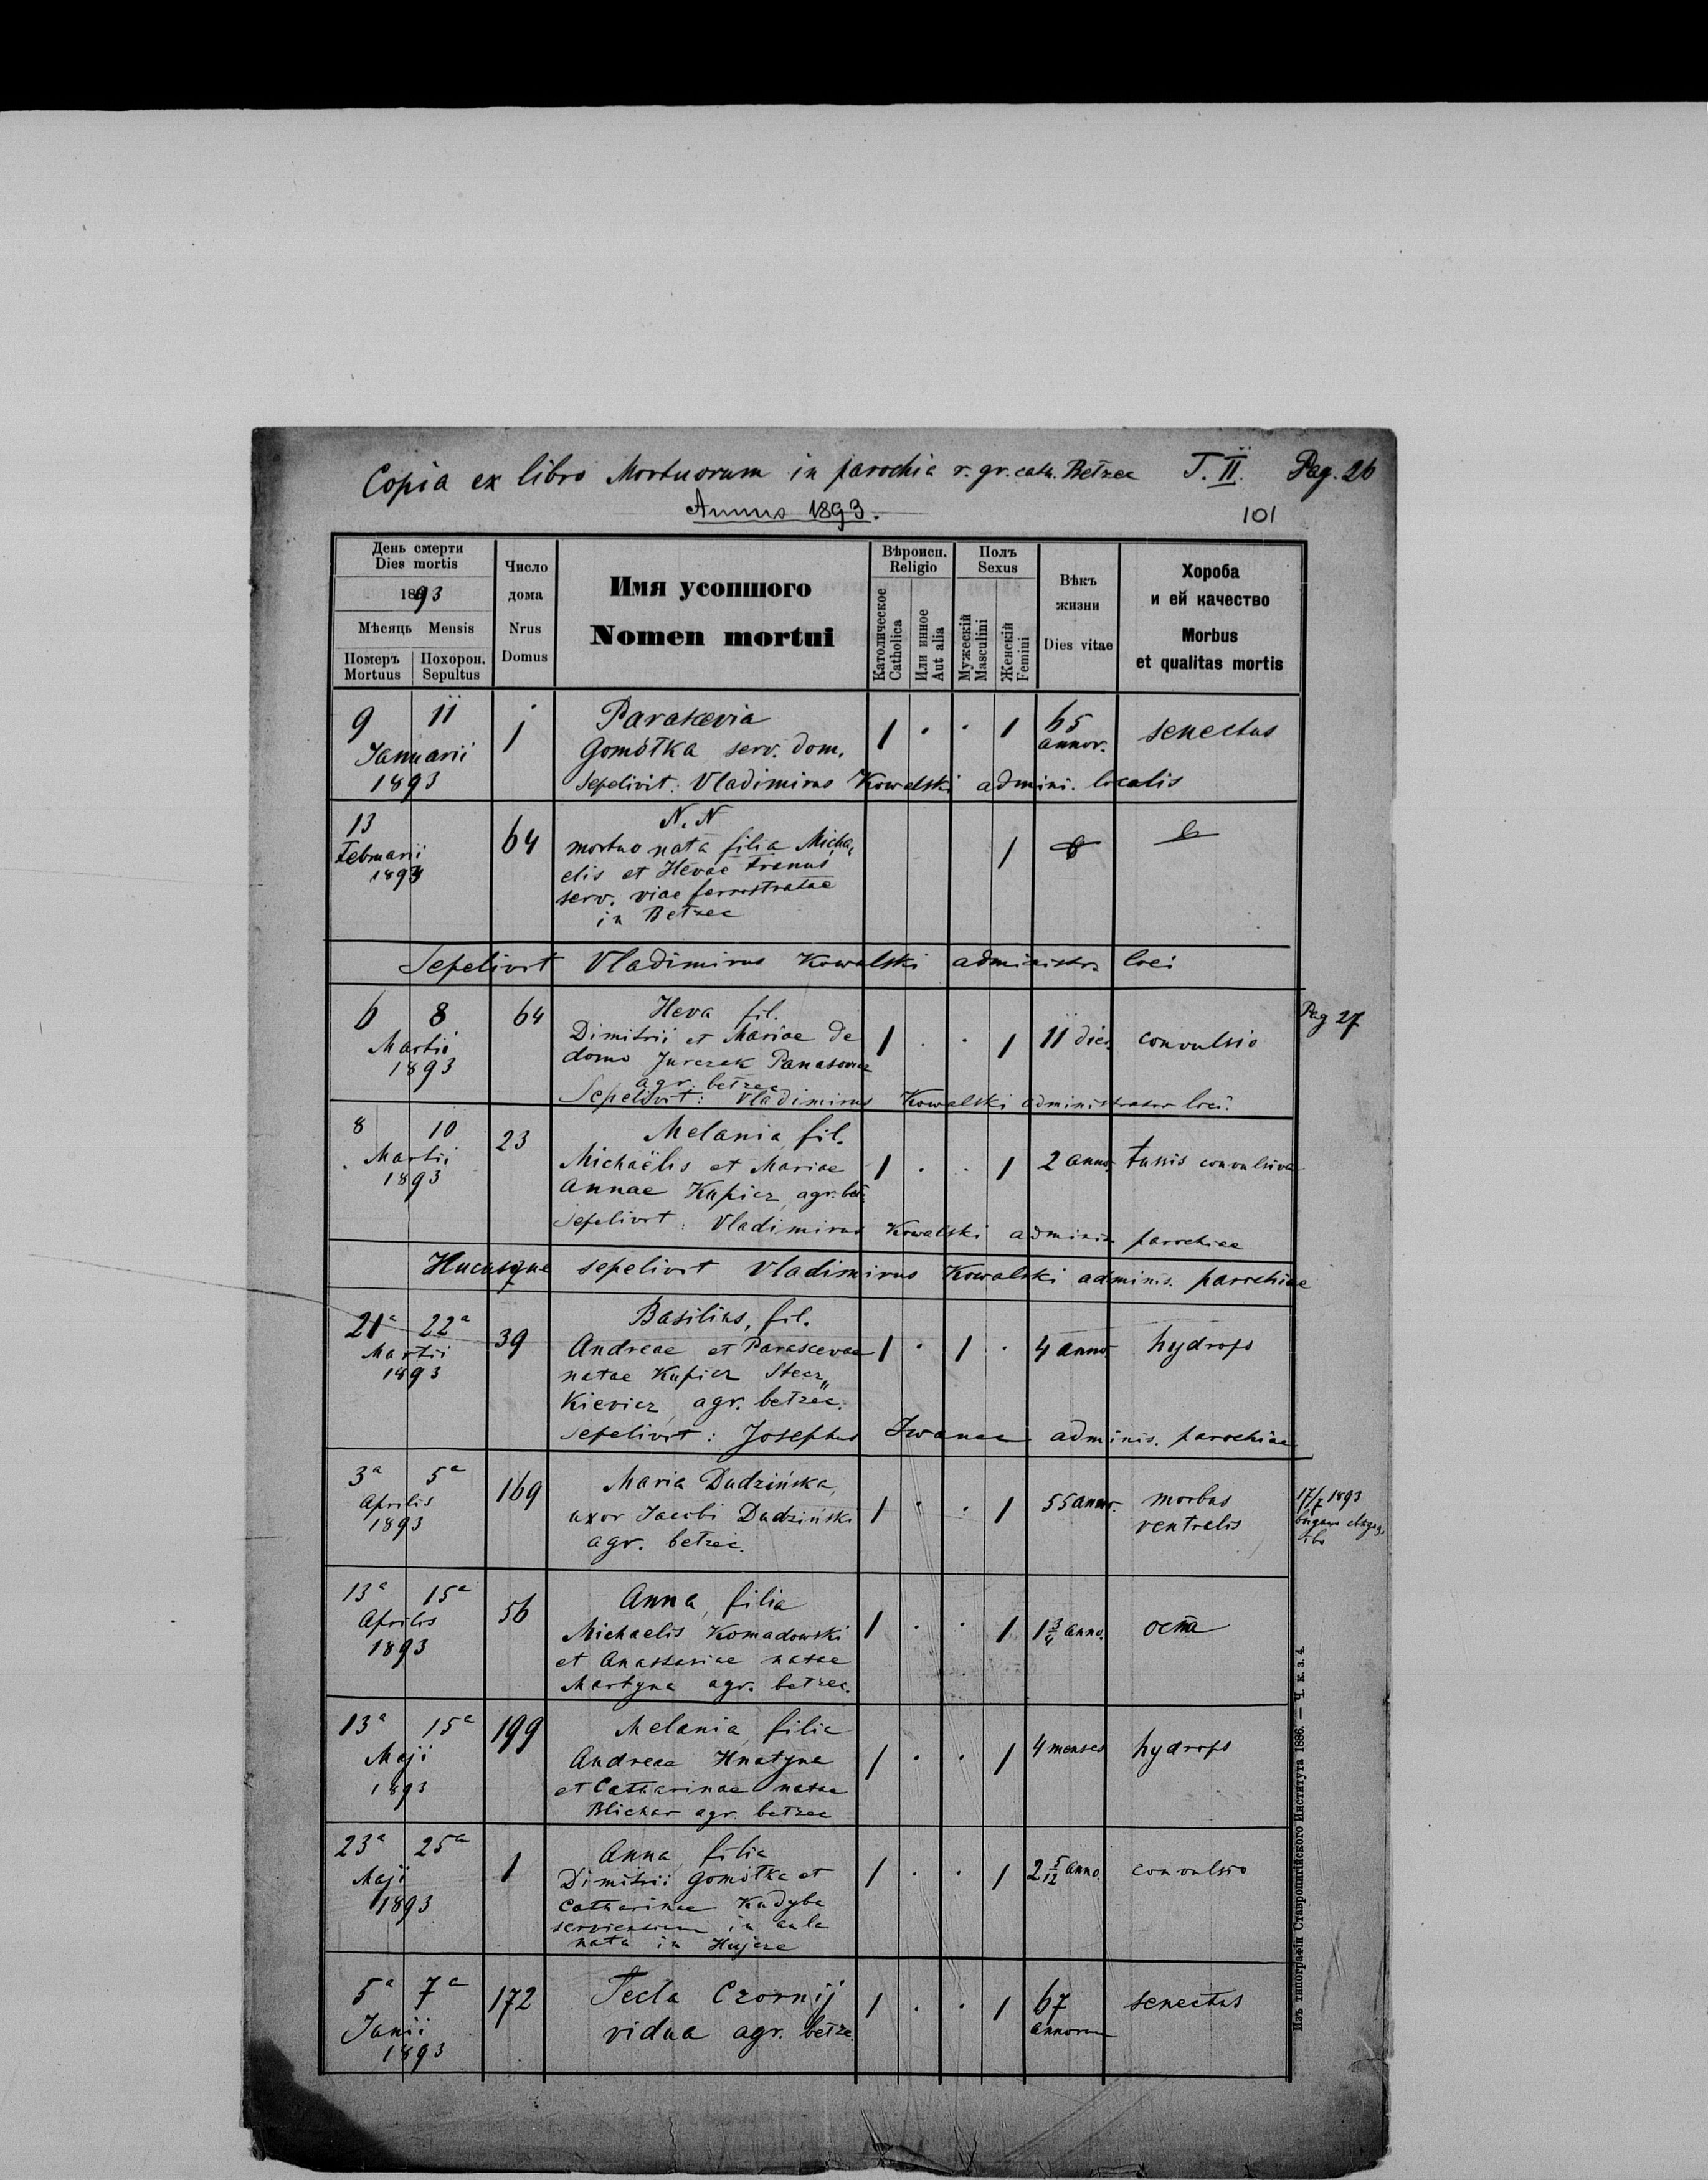 Copia ex libro Mortuorum in parochia r. gr. cath. Bełzec T. II. Pag. 26
Annus 1893.
101
День смерти
Dies mortis
1893
Мѣсяць Mensis
Померъ
Mortuus
Похорон.
Sepultus
Число
дома
Nrus
Domus
Имя усопшого
Nomen mortui
Вѣроисп.
Religio
Католическое
Catholica
Или инное
Aut alia
Полъ
Sexus
Мужескій
Masculini
Женскій
Femini
Вѣкъ
жизни
Dies vitae
Хороба
и ей качество
Morbus
et qualitas mortis
9 11
Januarii
1893
1
Paraskevia
Gomółka serv. dom.
1 . . 1
65
annor.
senectus
Sepelivit: Vladimirus Kowalski admini. localis
13
Februarii
1893
64
N. N
mortuo nata filia Micha,
elis et Hevae
serv. viae ferrostratae
in Bełzec
1
Sepelivit Vladimirus Kowalski administr. loci
6 8
Martii
1893
64
Heva fil.
Dimitrii et Mariae de
domo Jurczak
agr. bełzec
1 . . 1
11 dies
convulsio
Pag 27
Sepelivit: Vladimirus Kowalski administrator loci.
8 10
Martii
1893
23
Melania, fil.
Michaëlis et Mariae
Annae Kupicz, agr. beł.
1 . . 1
2 anno.
tussis convulsiva
Sepelivit: Vladimirus Kowalski adminis. parochiae
Hucusque sepelivit Vladimirus Kowalski adminis. parochiae
21ª 22ª
Martii
1893
39
Basilius, fil.
Andreae et Parascevae
natae Kupicz Stecz„
kievicz, agr. bełzec.
1 . 1 .
4 anno.
hydrops
Sepelivit: Josephus Iwanec adminis. parochiae
3ª 5ª
Aprilis
1893
169
Maria Dudzińska,
uxor Jacobi Dudziński
agr. bełzec.
1 . . 1
55 annor.
morbus
ventralis
17/7 1893
13ª 15ª
Aprilis
1893
56
Anna, filia
Michaelis Komadowski
et Anastasiae natae
Martyna agr. bełzec.
1 . . 1
1 3/4 anno.
13ª 15ª
Maji
1893
199
Melania, filia
Andreae Hnatyna
et Catharinae natae
Blichar agr. bełzec
1 . . 1
4 menses
hydrops
23ª 25ª
Maji
1893
1
Anna, filia
Dimitrii Gomółka et
Catharinae Kudyba
servientium in aula
nata in Hujcze
1 . . 1
2 5/12 anno.
convulsio
5ª 7ª
Junii
1893
172
Tecla Czornij
vidua agr. bełze.
1 . . 1
67
annorum
senectus
Изъ типографіи Ставропигійского Института 1886. — Ч. к. з. 4.